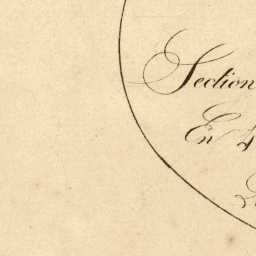 Section
En 4